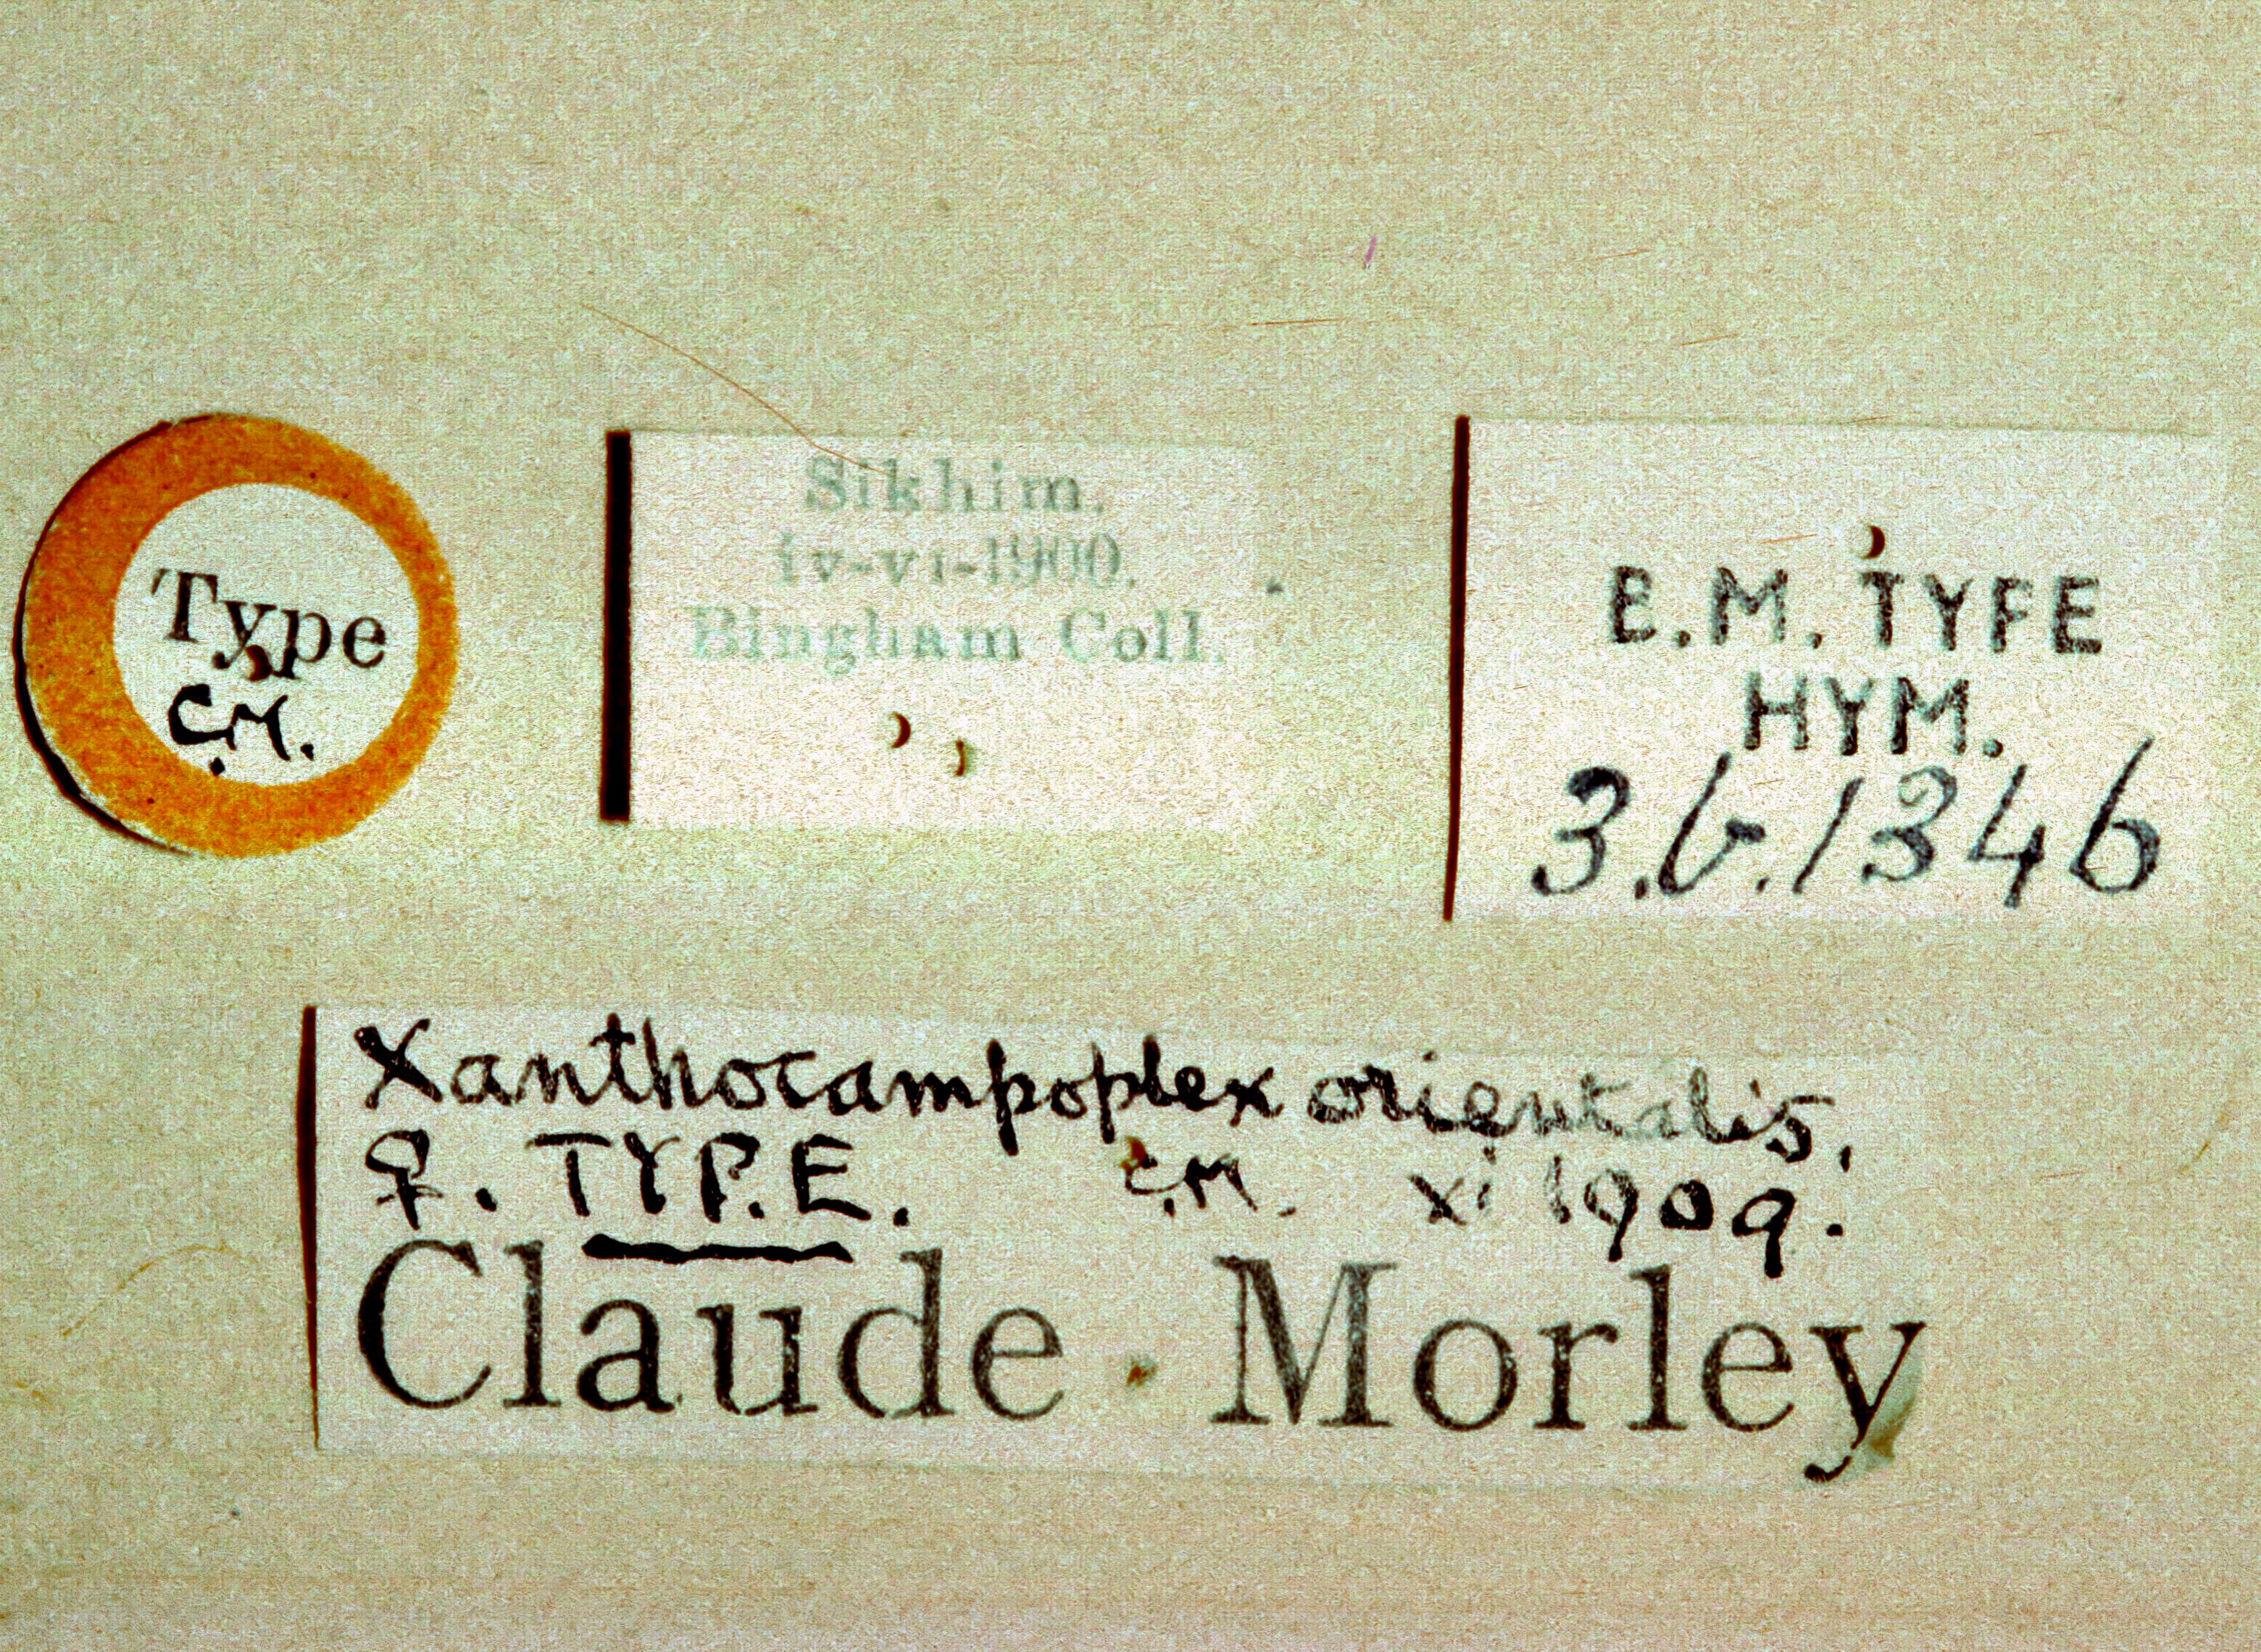 Type
C.M.
Sikhim.
iv-vi-1900.
Bingham Coll.
B.M. TYPE
HYM.
3.b.1346
Xanthocampoplex orientalis.
♀. TYPE. C.M. xi 1909.
Claude Morley